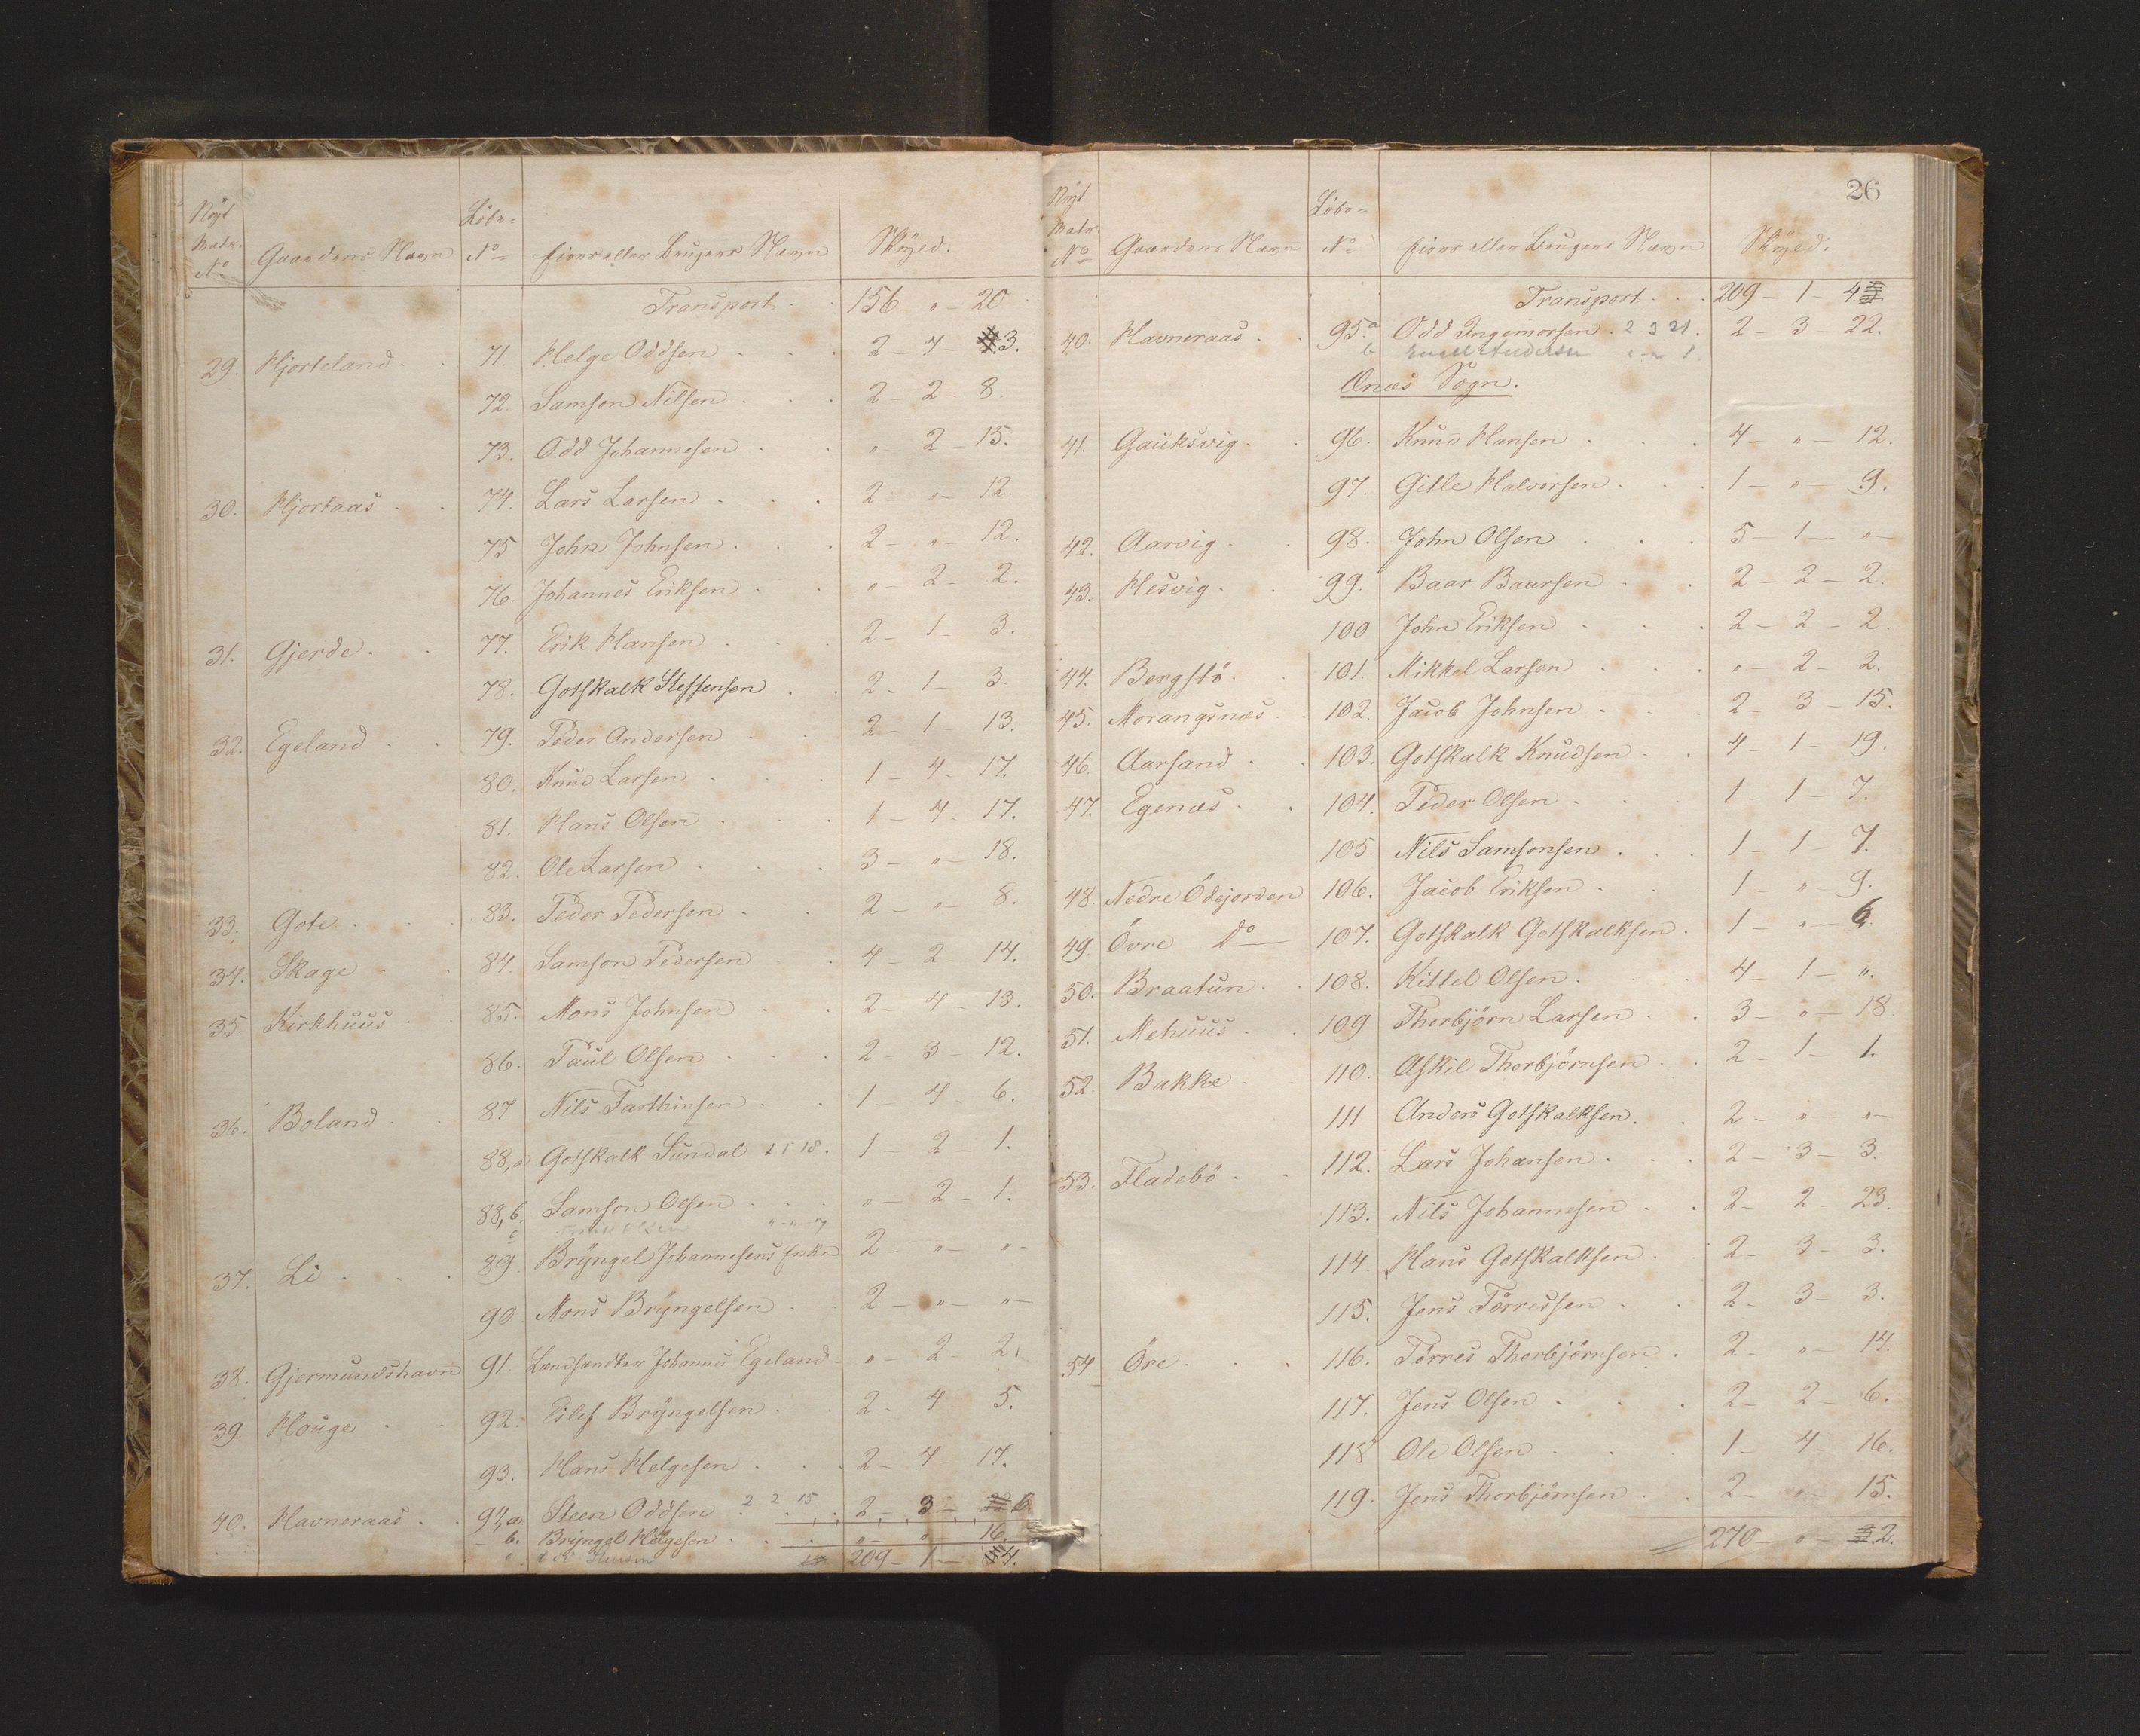 Nÿt
Matr.
No Gaardens Navn Löbe=
No Eiers eller Brugers Navn Skÿld.
Transport . . 156 - " - 20
29. Hjorteland . . 71. Helge Oddsen . . . 2 - 4 - 3.
72. Samson Nilsen . . . 2 - 2 - 8.
73. Odd Johannesen . . " - 2 - 15.
30. Hjortaas . . 74. Lars Larsen . . . 2 - " - 12.
75 John Johnsen . . . 2 - " - 12.
76. Johannes Eriksen . . " - 2 - 2.
31. Gjerde . . 77. Erik Hansen . . . 2 - 1 - 3.
78. Gotskalk Steffensen . . 2 - 1 - 3.
32. Egeland . . 79. Peder Andersen . . 2 - 1 - 13.
80. Knud Larsen . . . 1 - 4 - 17.
81. Hans Olsen . . . 1 - 4 - 17.
82. Ole Larsen . . . 3 - " - 18.
33. Gote . . . 83. Peder Pedersen . . 2 - " - 8.
34. Skage . . 84. Samson Pedersen . . 4 - 2 - 14.
35. Kirkhuus . . 85. Mons Johnsen . . 2 - 4 - 13.
86. Paul Olsen . . . 2 - 3 - 12.
36. Boland . . 87 Nils Farthinsen . . 1 - 4 - 6.
88,a Gotskalk Sundal 1 1 18 . 1 - 2 - 1.
88,b. Samson Olsen . . . " - 2 - 1.
c Olsen " " 7
37. Li . . . 89. Brÿngel Johannesens Enke 2 - " - " -
90 Mons Brÿngelsen . . 2 - " - " -
38. Gjermundshavn 91. Landhandler Johannes Egeland - " - 2 - 2.
39. Houge . . 92. Eilef Brÿngelsen . . 2 - 4 - 5.
93. Hans Helgesen . . . 2 - 4 - 17.
40. Havneraas . . 94,a. Steen Oddsen 2 2 15 2 - 3 - 6.
- b. Brÿngel Helgesen . . . " - " - 16.
209 - 1 - 4.
26
Nÿt
Matr.
No Gaardens Navn Löbe=
No Eiers eller Brugers Navn Skÿld.
Transport . . . 209 - 1 - 4.
40. Havneraas . . 95a Odd Ingemorsen . 2 3 21 . 2 - 3 - 22.
b Andersen " - " 1.
Ænæs Sogn.
41. Gauksvig . . 96. Knud Hansen . . . 4 - " - 12.
97. Gitle Halvorsen . . . 1 - " - 9.
42. Aarvig . . 98. John Olsen . . . 5 - 1 - " -
43. Hesvig . . 99. Baar Baarsen . . 2 - 2 - 2.
100 John Eriksen . . . 2 - 2 - 2.
44. Bergstö . . 101. Mikkel Larsen . . . " - 2 - 2.
45. Morangsnæs . . 102. Jacob Johnsen . . . 2 - 3 - 15.
46. Aarsand . . 103. Gotskalk Knudsen . . 4 - 1 - 19.
47. Egenæs . . 104. Peder Olsen . . . 1 - 1 - 7.
105. Nils Samsonsen . . . 1 - 1 - 7.
48. Nedre Ödejorden 106. Jacob Eriksen . . . 1 - " 9.
49. Övre do 107. Gotskalk Gotskalksen . 1 - " - 6.
50. Braatun . . 108. Kittel Olsen . . . 4 - 1 - ".
51. Mehuus . . 109 Thorbjörn Larsen . . 3 - " - 18
52. Bakke . . 110. Askil Thorbjörnsen . . 2 - 1 - 1.
111 Anders Gotskalksen . . 2 - " - " -
53. Fladebö . . 112. Lars Johansen . . . 2 - 3 - 3.
113. Nils Johannesen . . 2 - 2 - 23.
114. Hans Gotskalksen . . 2 - 3 - 3.
115. Jens Törresen . . 2 - 3 - 3.
54. Öre . . . 116. Törres Thorbjörnsen . 2 - " - 14.
117. Jens Olsen . . . 2 - 2 - 6.
118 Ole Olsen . . . 1 - 4 - 16.
119. Jens Thorbjörnsen . . 2 - " - 15.
270 - " - 2.